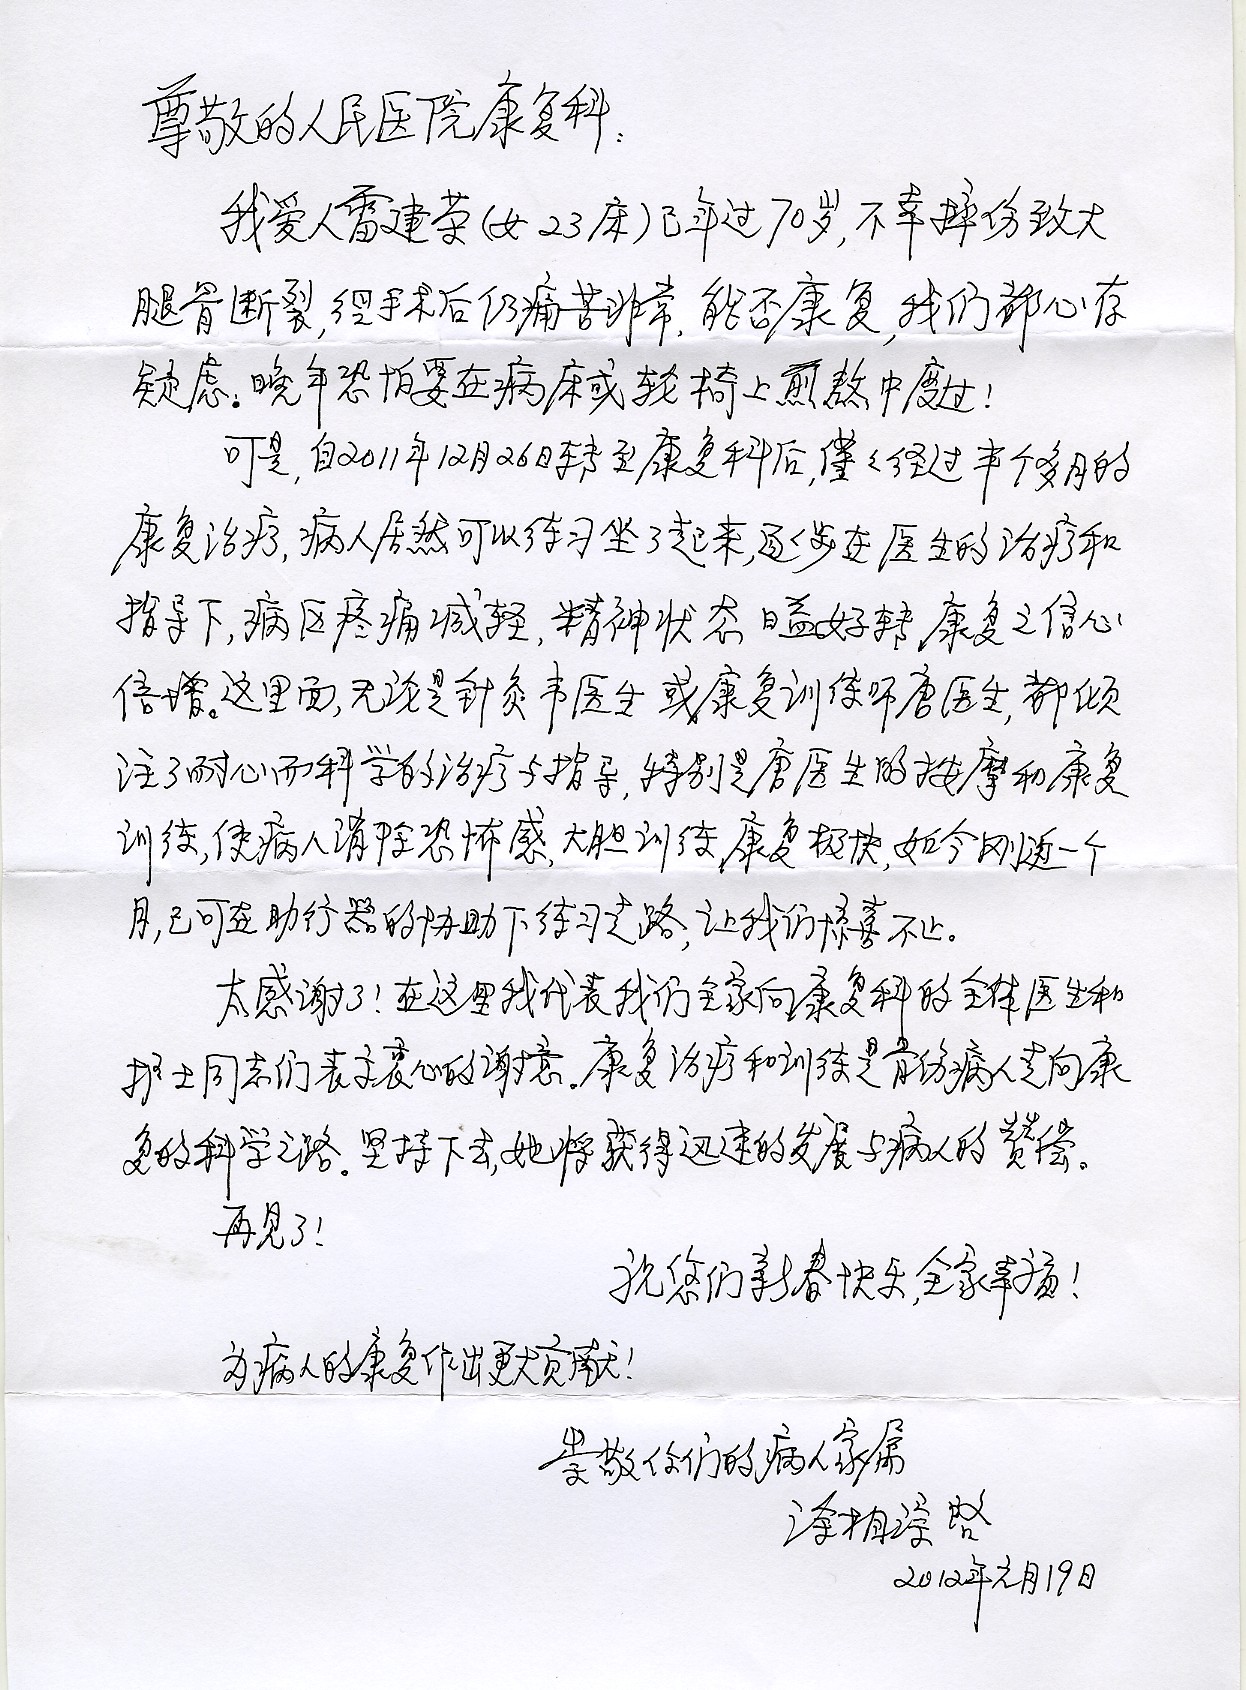 尊敬的人民医院康复科:
我爱人雷建荣(女23床)已年过70岁,不幸摔伤致大
腿骨断裂,经手术后仍痛苦非常,能否康复,我们都心存
疑虑。晚年恐怕要在病床或轮椅上煎熬中度过!
可是,自2011年12月26日转至康复科后,仅仅经过半个多月的
康复治疗,病人居然可以练习坐了起来,逐步在医生的治疗和
指导下,病区疼痛减轻,精神状态日益好转,康复之信心
倍增。这里面,无论是针灸韦医生或康复训练师唐医生,都倾
注了耐心而科学的治疗与指导,特别是唐医生的按摩和康复
训练,使病人消除恐怖感,大胆训练,康复极快,如今刚近一个
月,已可在助行器的协助下练习走路,让我们惊喜不止。
太感谢了!在这里我代表我们全家向康复科的全体医生和
护士同志们表示衷心的谢意。康复治疗和训练是骨伤病人走向康
复的科学之路。坚持下去,她将获得迅速的发展与病人的赞偿。
再见了!
祝您们新春快乐,全家幸福!
为病人的康复作出更大贡献!
崇敬你们的病人家属
涂相深 启
2012年元月19日